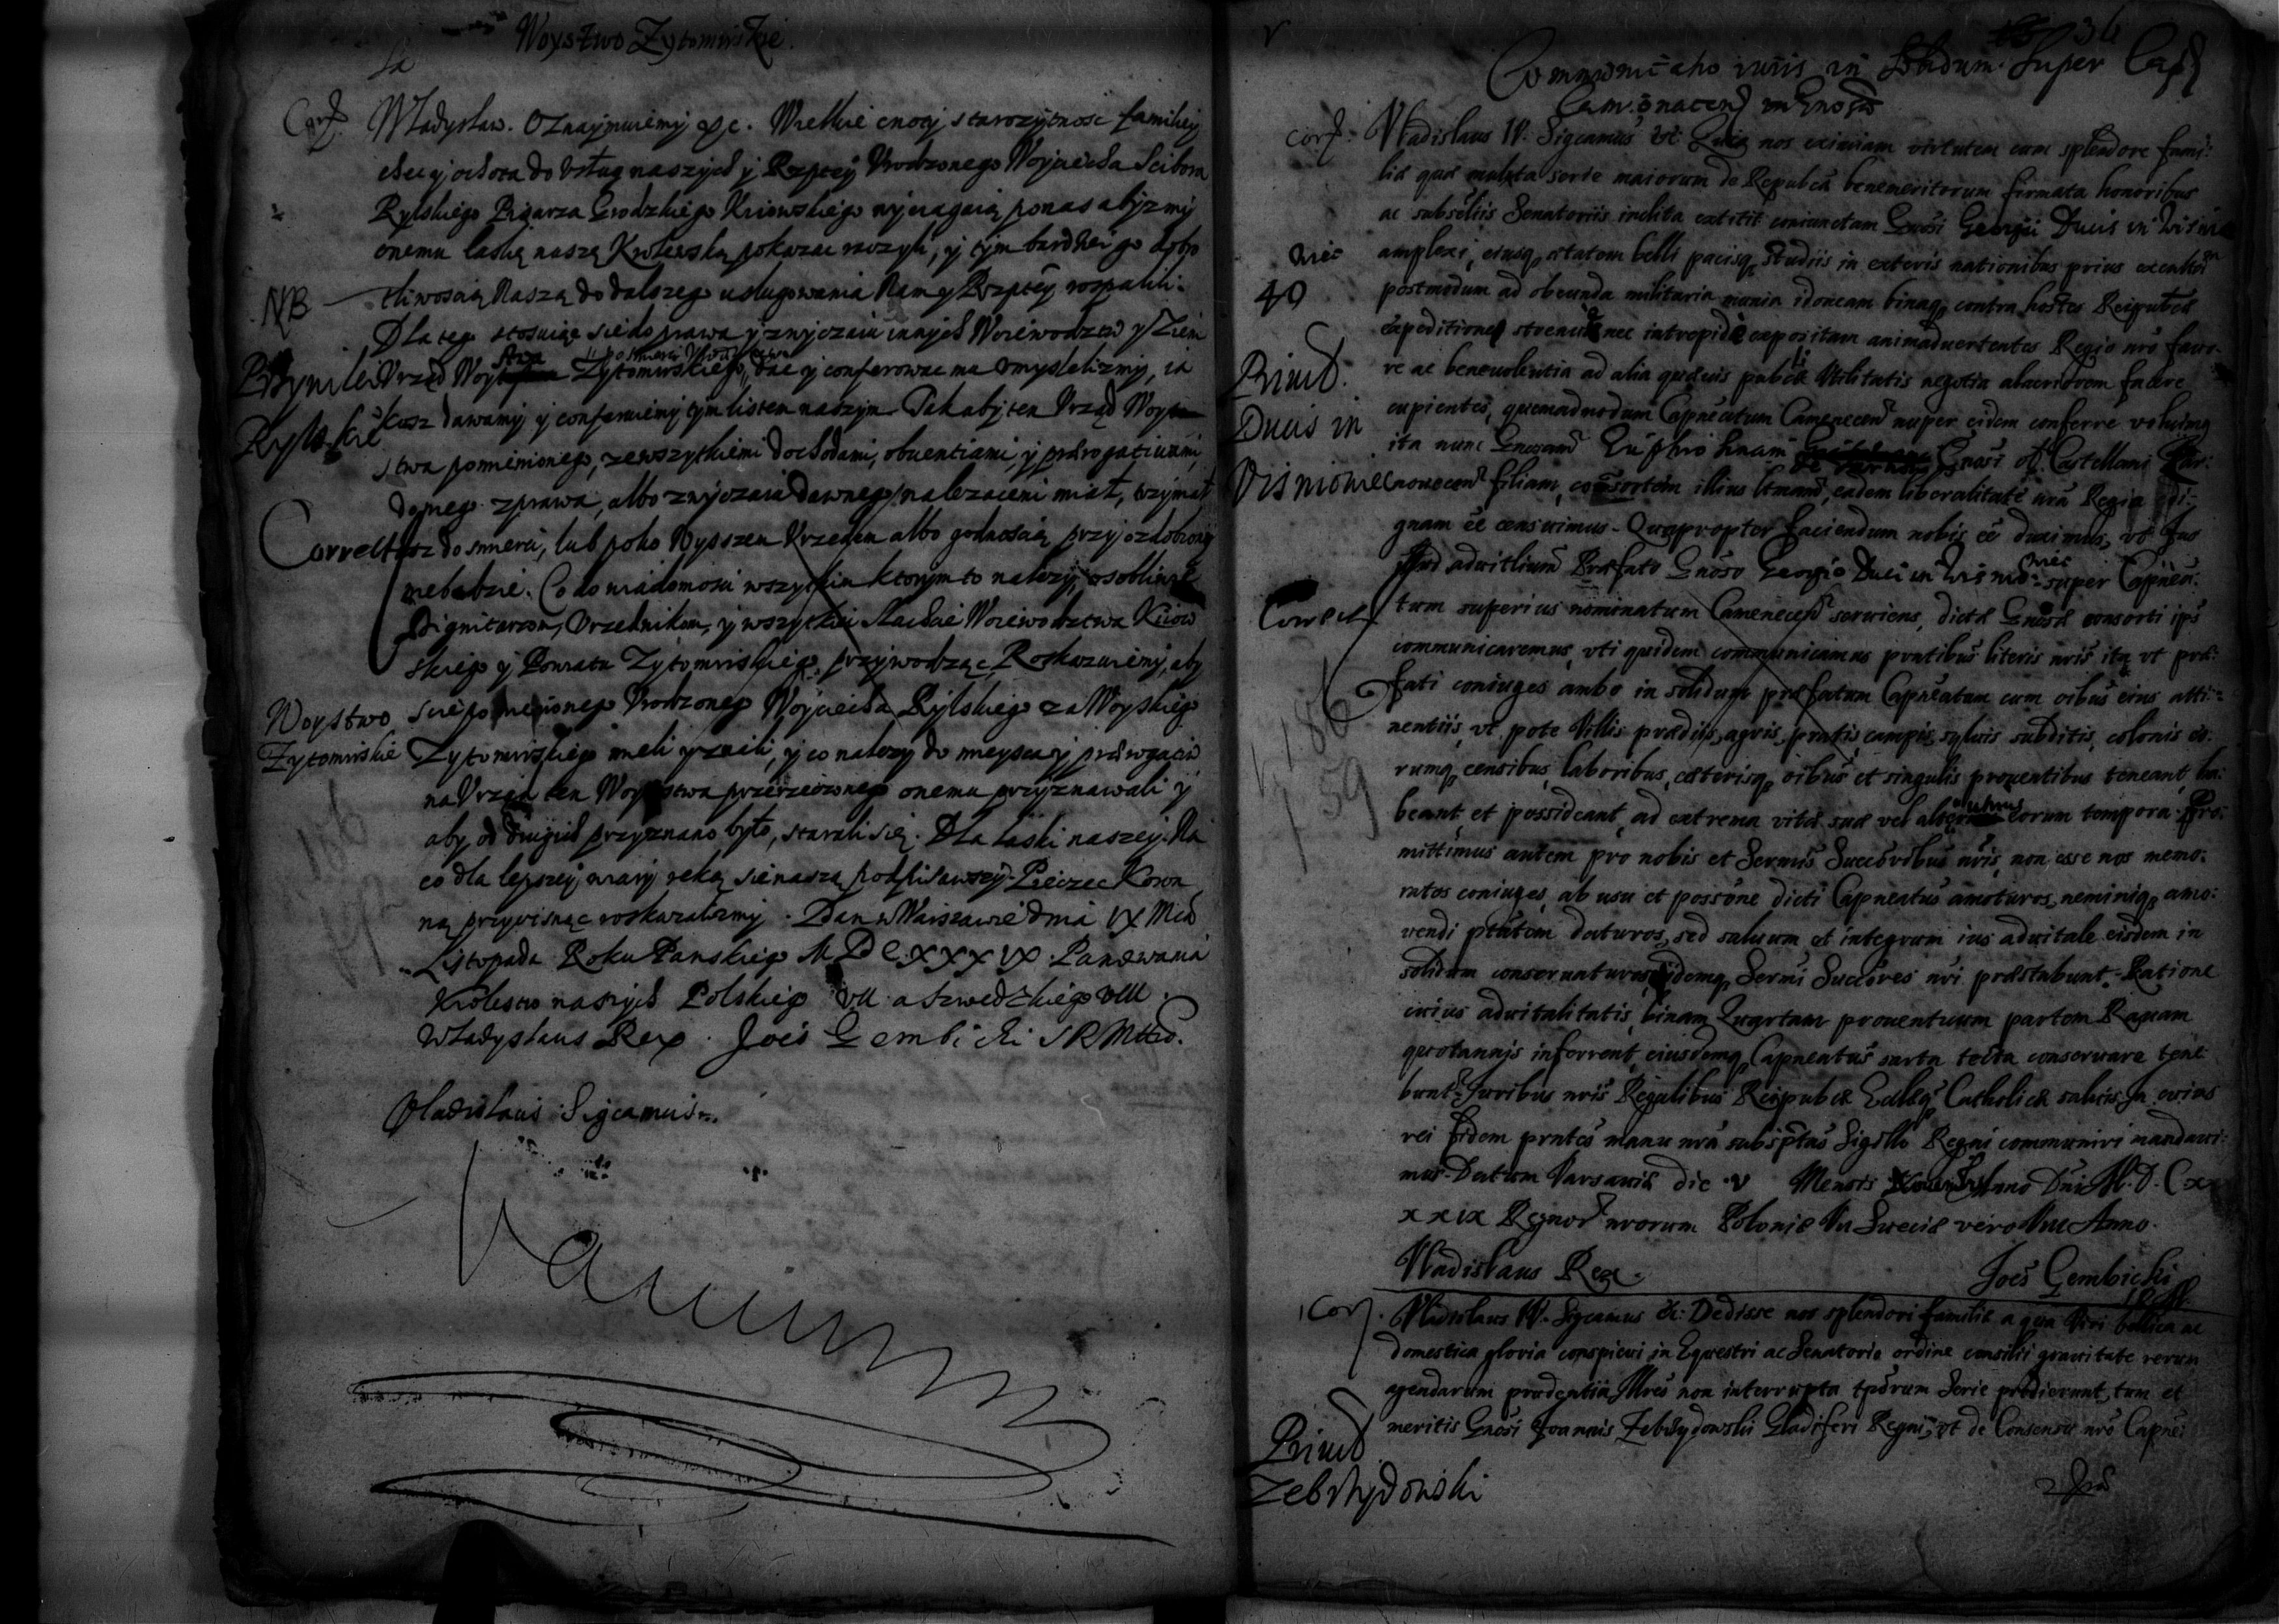 Woystwo Zytomirskie.
Corr
Władysław. Oznaymuiemy &c. Wielkie cnoty starozytnosc familiey
checy ochota do usług naszych y Rzptey Vrodzonego Woyciecha Scibora
Rylskiego Pisarza Grodzkiego Kiiowskiego wyciągaią ponas abyzmy
onemu łaskę naszą Krolewską pokazac raczyli, y tym bardziei go dobro
NB
tliwoscią Naszą do dalszego usługowania Nam y Rzptey rozpalili.
Dla tego stosuiąc sie do prawa y zwyczaiu innych Woiewodztw y Ziem
Vrząd Woystwa Zytomirskiego, dac y conferowac mu vmyslilizmy, ia
Rylskie
kosz dawamy y conferuiemy tym listem naszym. Tak aby ten Vrząd Woy
stwa pomienionego, zewszytkiemi dochodami, obuentiami, y praerogatiuami,
donego zprawa, albo zwyczaiu dawnego nalezacemi miał, trzymał
Correct
asz do smierci, lub poko wysszem Vrzedem albo godnoscią przyozdobiony
niebedzie. Co do wiadomosci wszytkim ktorym to nalezy, osobliwie
Dignitarzom, Vrzednikom, y wszytkiei Szlachcie Woiewodztwa Kiiow
skiego y Powiatu Zytomirskiego przywodząc, Roskazuiemy, aby
Woystwo
Zytomirskie
wyzejpomienionego Vrodzonego Woyciecha Rylskiego za Woyskiego
Zytomirskiego mieli y znali, y co nalezy do mieysca y praerogatiw
na Vrząd ten Woystwa przerzeczonego onemu przyznawali y
aby od drugich przyznano było, starali się. Dla łaski naszey. Na
co dla lepszey wiary ręką sie naszą podpisawszy Pieczec Koron
ną przycisnąc roskazalizmy. Dan w Warszawie dnia IX Mca
Listopada Roku Panskiego M DC XXXIX. Panowania
Krolestw naszych Polskiego VII a Szwedzkiego VIII.
Władysłaus Rex. Joes Gembicki SRMtis.
Vladislaus Sigcamus.
36
Communicatio iuris in solidum super Cap
Corr.
Vladislaus IV. Sigcamus &c Quia nos eximiam virtutem cum splendore fami-
lia quae multa serie maiorum de Republca benemeritorum firmata honoribus
ac subselliis Senatoriis inclita extitit coniunctam Gnosi Georgii Ducis in Wisnio
wiec
40
amplexi, eiusq, aetatem belli pacisq, studiis in exteris nationibus prius excultam
postmodum ad obeunda militaria munia idoneam binaq, contra hostes Reipublca
expeditione strenue nec intrepide expositam animaduertentes Regio nro fauo-
re ac beneuolentia ad alia quaeuis publicae Vtilitatis negotia alacriorem facere
Ducis in
cupientes, quemadmodum Capneatum Camenecen nuper eidem conferre voluimus
ita nunc Gnosam Euphrosinam Gnosi ol. Castellani
filiam, consortem illius ltmam, eadem liberalitate nra Regia
gnam ee censuimus. Quapropter faciendum nobis ee duximus, vt Ius
aduitlium Praefato Gnoso Georgio Duci in Wisnio-wiec super Capnea:
Correct
tum superius nominatum Camenecen seruiens, dictae Gnosae consorti ips
communicaremus, vti quidem communicamus pntibus literis nris ita vt prae-
fati coniuges ambo in solidum praefatum Capneatum cum oibus eius atti-
186
59
nentiis, vt pote Villis praediis, agris, pratis, campis, syluis subditis, colonis eo.
rumq, censibus, laboribus, caeterisq, oibus et singulis prouentibus teneant, ha:
beant et possideant, ad extrema vitae suae vel alterutrius eorum tempora. Pro:
mittimus autem pro nobis et Sermis Succoribus nris, non esse nos memo:
ratos coniuges, ab usu et possone dicti Capneatus amoturos, neminiq, amo:
uendi ptatem daturos, sed saluum et integrum ius aduitale eisdem in
solidum conseruaturos, idemq, Sermi Succores nri praestabunt. Ratione
cuius aduitalitatis, binam Quartam prouentuum partem Rauam
quotannis inferrent, eiusdemq, Capneatus sarta tecta conseruare tene
bunt. Iuribus nris Regalibus Reipublcae Ecclaeq Catholicae saluis. In cuius
rei fidem pntes manu nra subsptas Sigillo Regni communiri mandaui-
mus. Datum Varsauiae die V Mensis Anno Dni M.D.Cx
xxix Regnor nrorum Poloniae VII Sueciae vero VIII Anno.
Vladislaus Rex.
Joes Gembicki
Corr.
Vladislaus IV. Sigcamus &c: Dedisse nos splendori familiae a qua Viri bellica ac
domestica gloria conspicui in Equestri ac Senatorio ordine consilii grauitate rerum
agendarum prudentia Illres non interrupta tporum serie prodierunt, tum et
meritis Gnosi Joannis Zebrzydowski Gladiferi Regni, vt de Consensu nro Capnei
Zebrzydowski